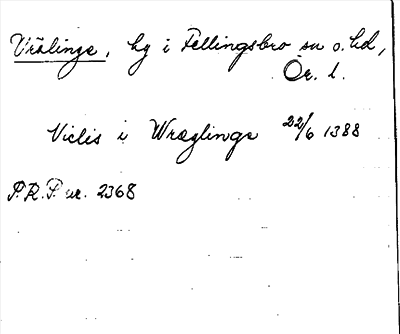 Vrälinge, by i Fellingsbro sn o. hd,
Ör. l.
Viclis i Wræglinge 22/6 1388
P.R.P. nr. 2368